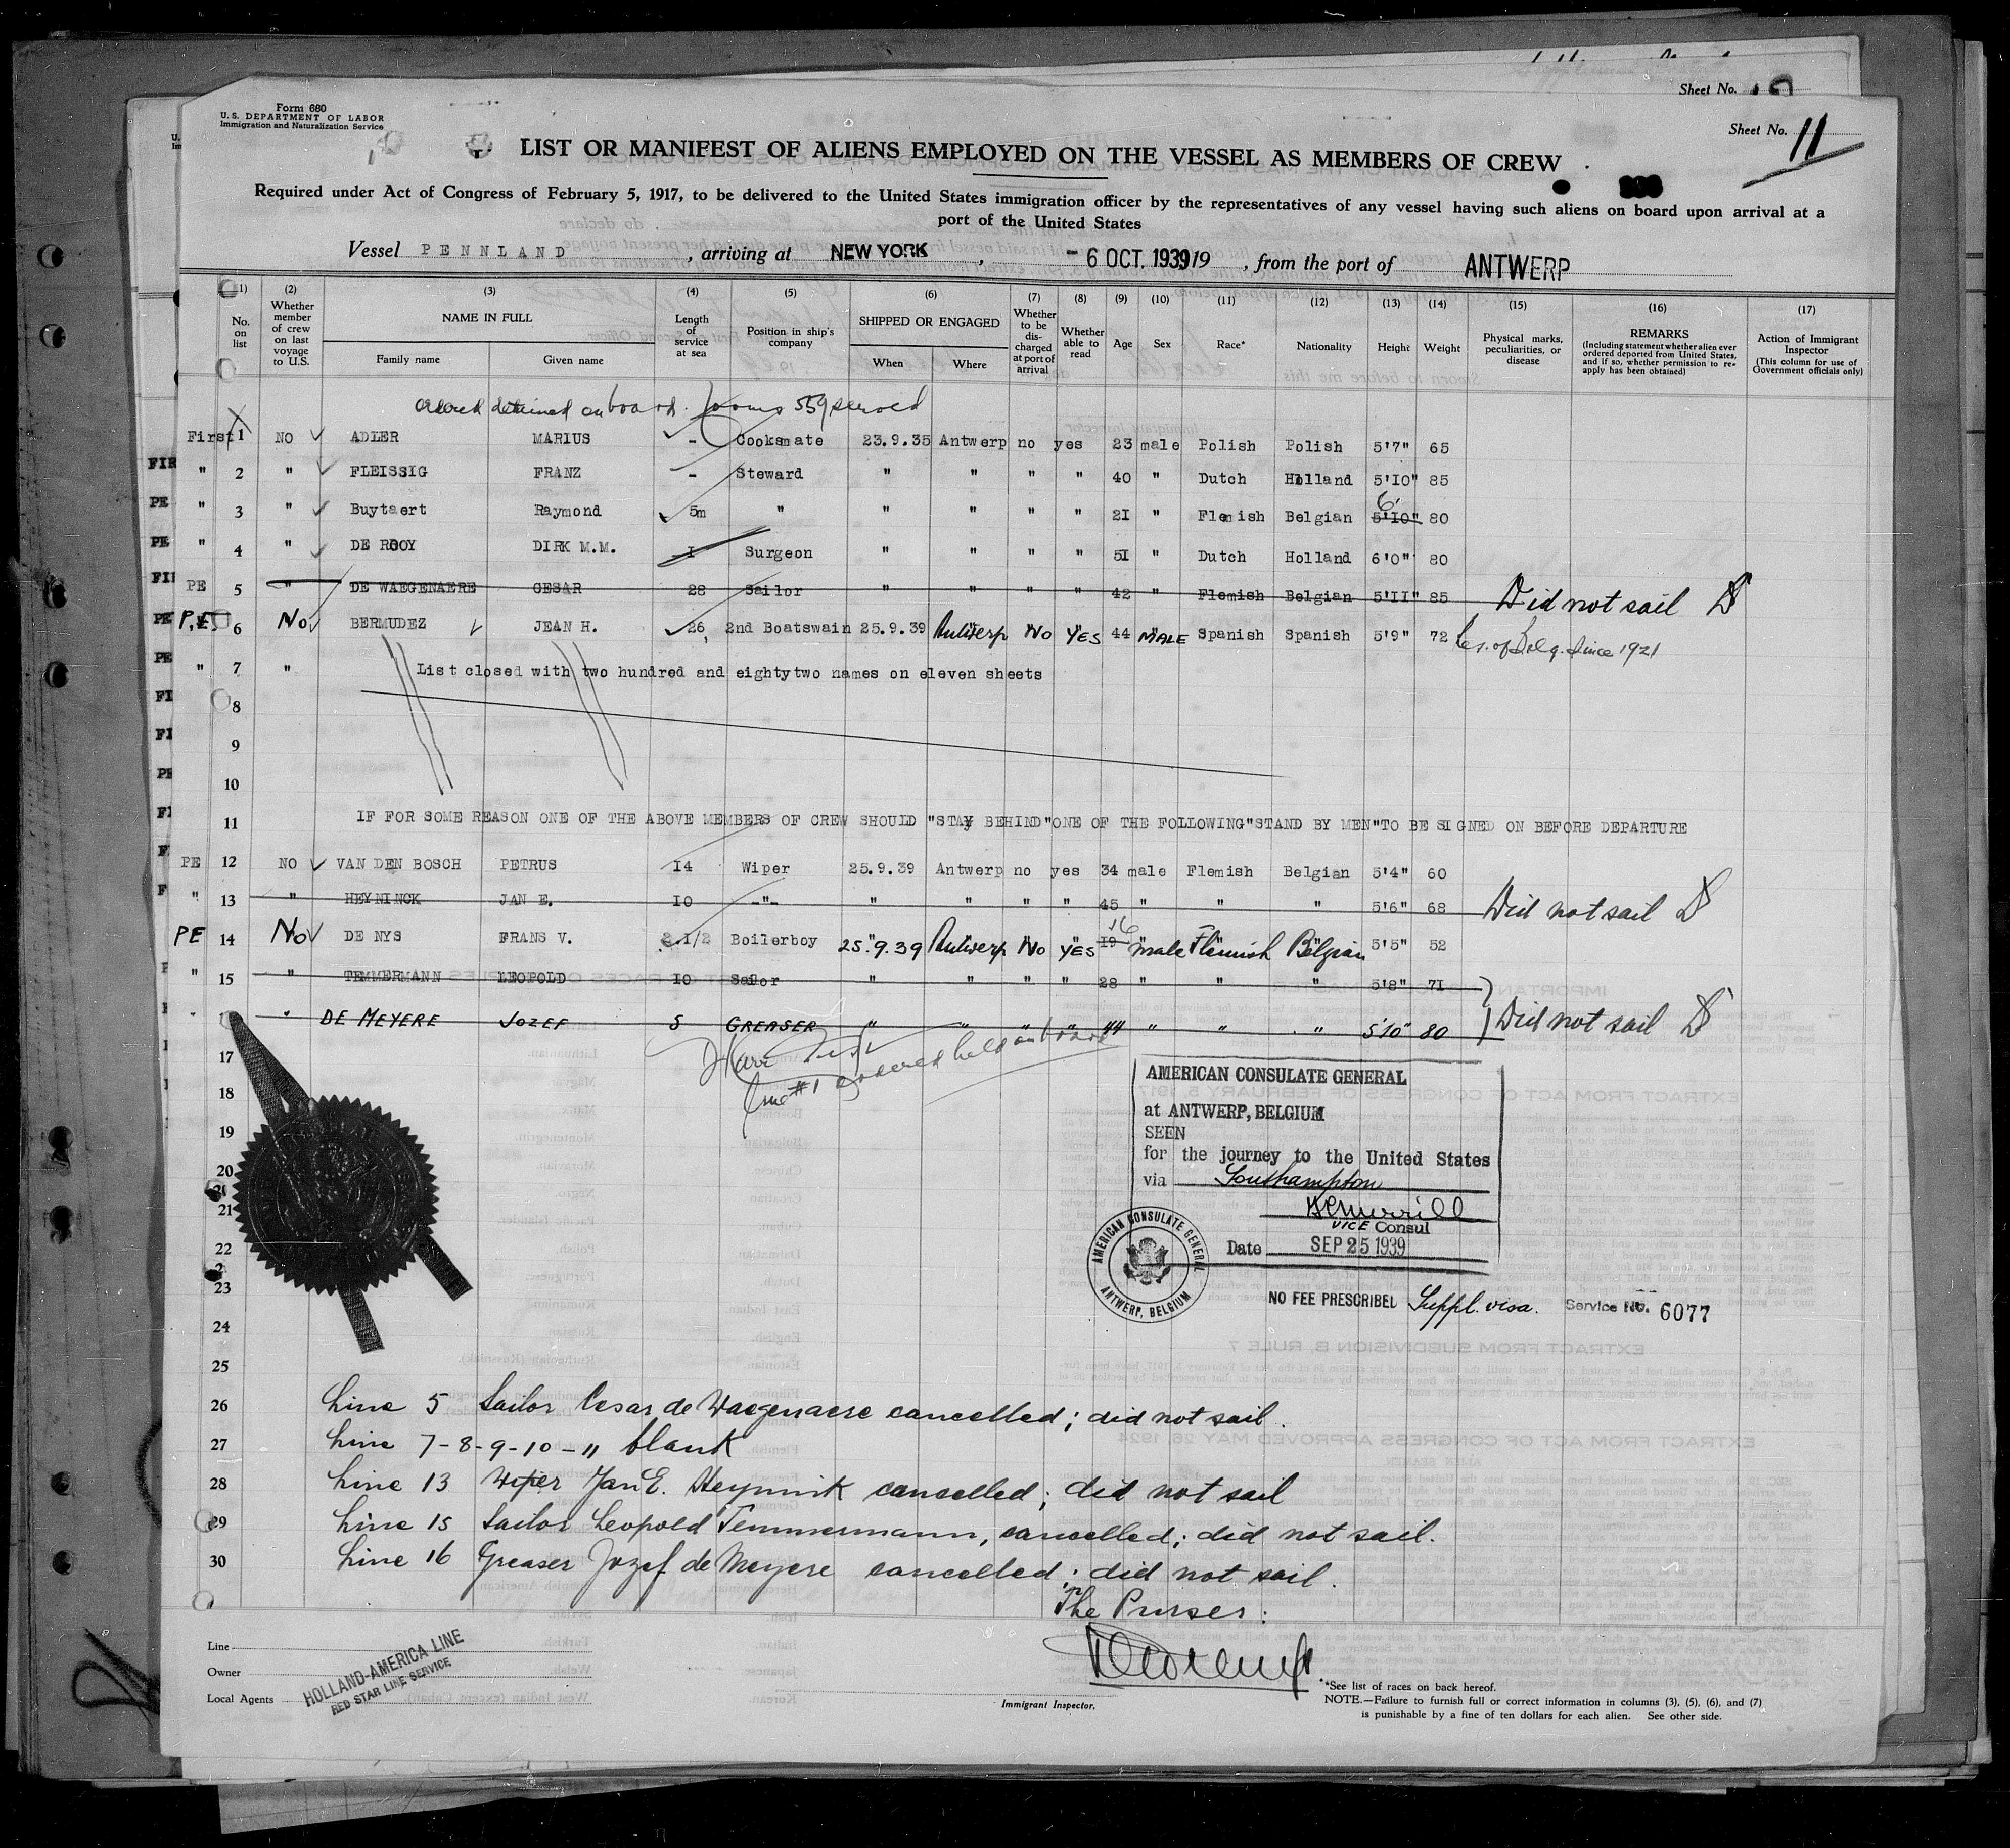 Sheet No.
Form 680
U. S. DEPARTMENT OF LABOR
Immigration and Naturalization Service
Sheet No. 11
LIST OR MANIFEST OF ALIENS EMPLOYED ON THE VESSEL AS MEMBERS OF CREW
Required under Act of Congress of February 5, 1917, to be delivered to the United States immigration officer by the representatives of any vessel having such aliens on board upon arrival at a
port of the United States
Vessel PENNLAND, arriving at NEW YORK, - 6 OCT. 1939 19, from the port of ANTWERP
(1) (2) (3) (4) (5) (6) (7) (8) (9) (10) (11) (12) (13) (14) (15) (16) (17)
No. on list
Whether member of crew on last voyage to U.S.
NAME IN FULL
Family name Given name
Length of service at sea
Position in ship's company
SHIPPED OR ENGAGED
When Where
Whether to be discharged at port of arrival
Whether able to read
Age Sex Race* Nationality Height Weight
Physical marks, peculiarities, or disease
REMARKS
(Including statement whether alien ever ordered deported from United States, and if so, whether permission to reapply has been obtained)
Action of Immigrant Inspector
(This column for use of Government officials only)
detained on board 559 served
First 1 NO ADLER MARIUS - Cooksmate 23.9.35 Antwerp no yes 23 male Polish Polish 5'7" 65
" 2 " FLEISSIG FRANZ - Steward " " " " 40 " Dutch Holland 5'10" 85
" 3 " Buytaert Raymond 5m " " " " " 21 " Flemish Belgian 5'10" 6' 80
" 4 " DE ROOY DIRK M.M. 1 Surgeon " " " " 51 " Dutch Holland 6'0" 80
PE 5 " DE WAEGENAERE CESAR 28 Sailor " " " " 42 " Flemish Belgian 5'11" 85 Did not sail
P.E. 6 No BERMUDEZ JEAN H. 26 2nd Boatswain 25.9.39 Antwerp No YES 44 MALE Spanish Spanish 5'9" 72 Res. of Belg. since 1921
" 7 " List closed with two hundred and eightytwo names on eleven sheets
8
9
10
11 IF FOR SOME REASON ONE OF THE ABOVE MEMBERS OF CREW SHOULD "STAY BEHIND" ONE OF THE FOLLOWING "STAND BY MEN" TO BE SIGNED ON BEFORE DEPARTURE
PE 12 NO VAN DEN BOSCH PETRUS 14 Wiper 25.9.39 Antwerp no yes 34 male Flemish Belgian 5'4" 60
" 13 " HEYNINCK JAN E. 10 -"- " " " " 45 " " " 5'6" 68 Did not sail
PE 14 No DE NYS FRANS V. 2.1/2 Boilerboy 25.9.39 Antwerp No YES 19 16 male Flemish Belgian 5'5" 52
" 15 " TEMMERMANN LEOPOLD 10 Sailor " " " " 28 " " " 5'8" 71
" " DE MEYERE JOZEF 5 GREASER " " " " 44 " " " 5'10" 80 Did not sail
17
Line #1 ordered held on board
18
19
20
21
22
23
24
25
AMERICAN CONSULATE GENERAL
at ANTWERP, BELGIUM
SEEN
for the journey to the United States
via Southampton
VICE Consul
Date SEP 25 1939
AMERICAN CONSULATE GENERAL
ANTWERP, BELGIUM
NO FEE PRESCRIBED Suppl. visa. Service No. 6077
26 Line 5 Sailor Cesar de Waegenaere cancelled; did not sail.
27 Line 7-8-9-10-11 blank
28 Line 13 Wiper Jan E. Heynink cancelled; did not sail
29 Line 15 Sailor Leopold Temmermann, cancelled; did not sail.
30 Line 16 Greaser Jozef de Meyere cancelled; did not sail.
The Purser:
Line
Owner
Local Agents
HOLLAND-AMERICA LINE
RED STAR LINE SERVICE
Immigrant Inspector.
*See list of races on back hereof.
NOTE.—Failure to furnish full or correct information in columns (3), (5), (6), and (7)
is punishable by a fine of ten dollars for each alien. See other side.